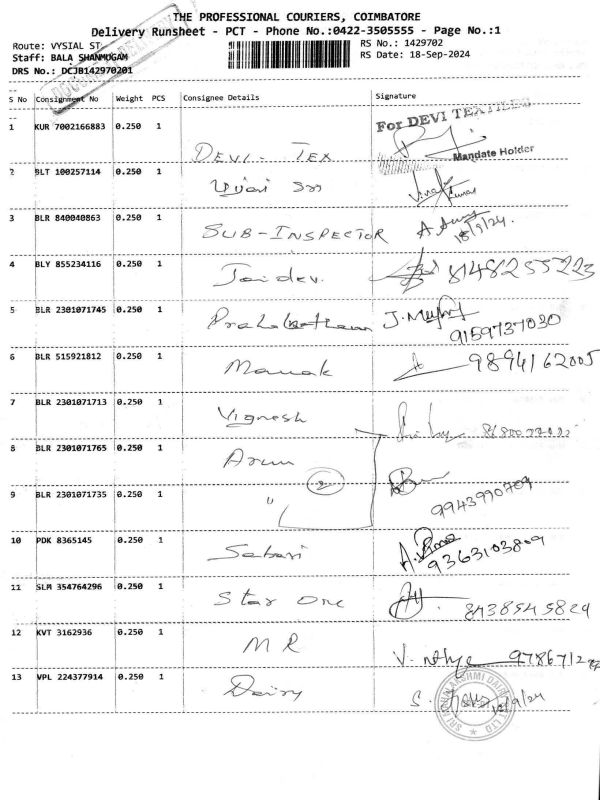 THE PROFESSIONAL COURIERS, COIMBATORE
Delivery Runsheet - PCT - Phone No.:0422-3505555 - Page No.:1
Route: VYSIAL ST
RS No.: 1429702
Staff: BALA SHANMUGAM
RS Date: 18-Sep-2024
DRS No.: DCJB142970201
S No Consignment No Weight PCS Consignee Details Signature
1 KUR 7002166883 0.250 1 DEVI - TEX For DEVI TEXTILES
Mandate Holder
2 BLT 100257114 0.250 1
3 BLR 840040863 0.250 1 SUB-INSPECTOR 18/9/24.
4 BLY 855234116 0.250 1 Jaidev. 8148255223
5 BLR 2301071745 0.250 1 9159737030
6 BLR 515921812 0.250 1 Manak 9894162005
7 BLR 2301071713 0.250 1 Vignesh
8 BLR 2301071765 0.250 1 Arun
9 BLR 2301071735 0.250 1 " 2 9943990709
10 PDK 8365145 0.250 1 Sabari 9363103809
11 SLM 354764296 0.250 1 Star One 8438545829
12 KVT 3162936 0.250 1 MR
13 VPL 224377914 0.250 1 Dairy 18/9/24